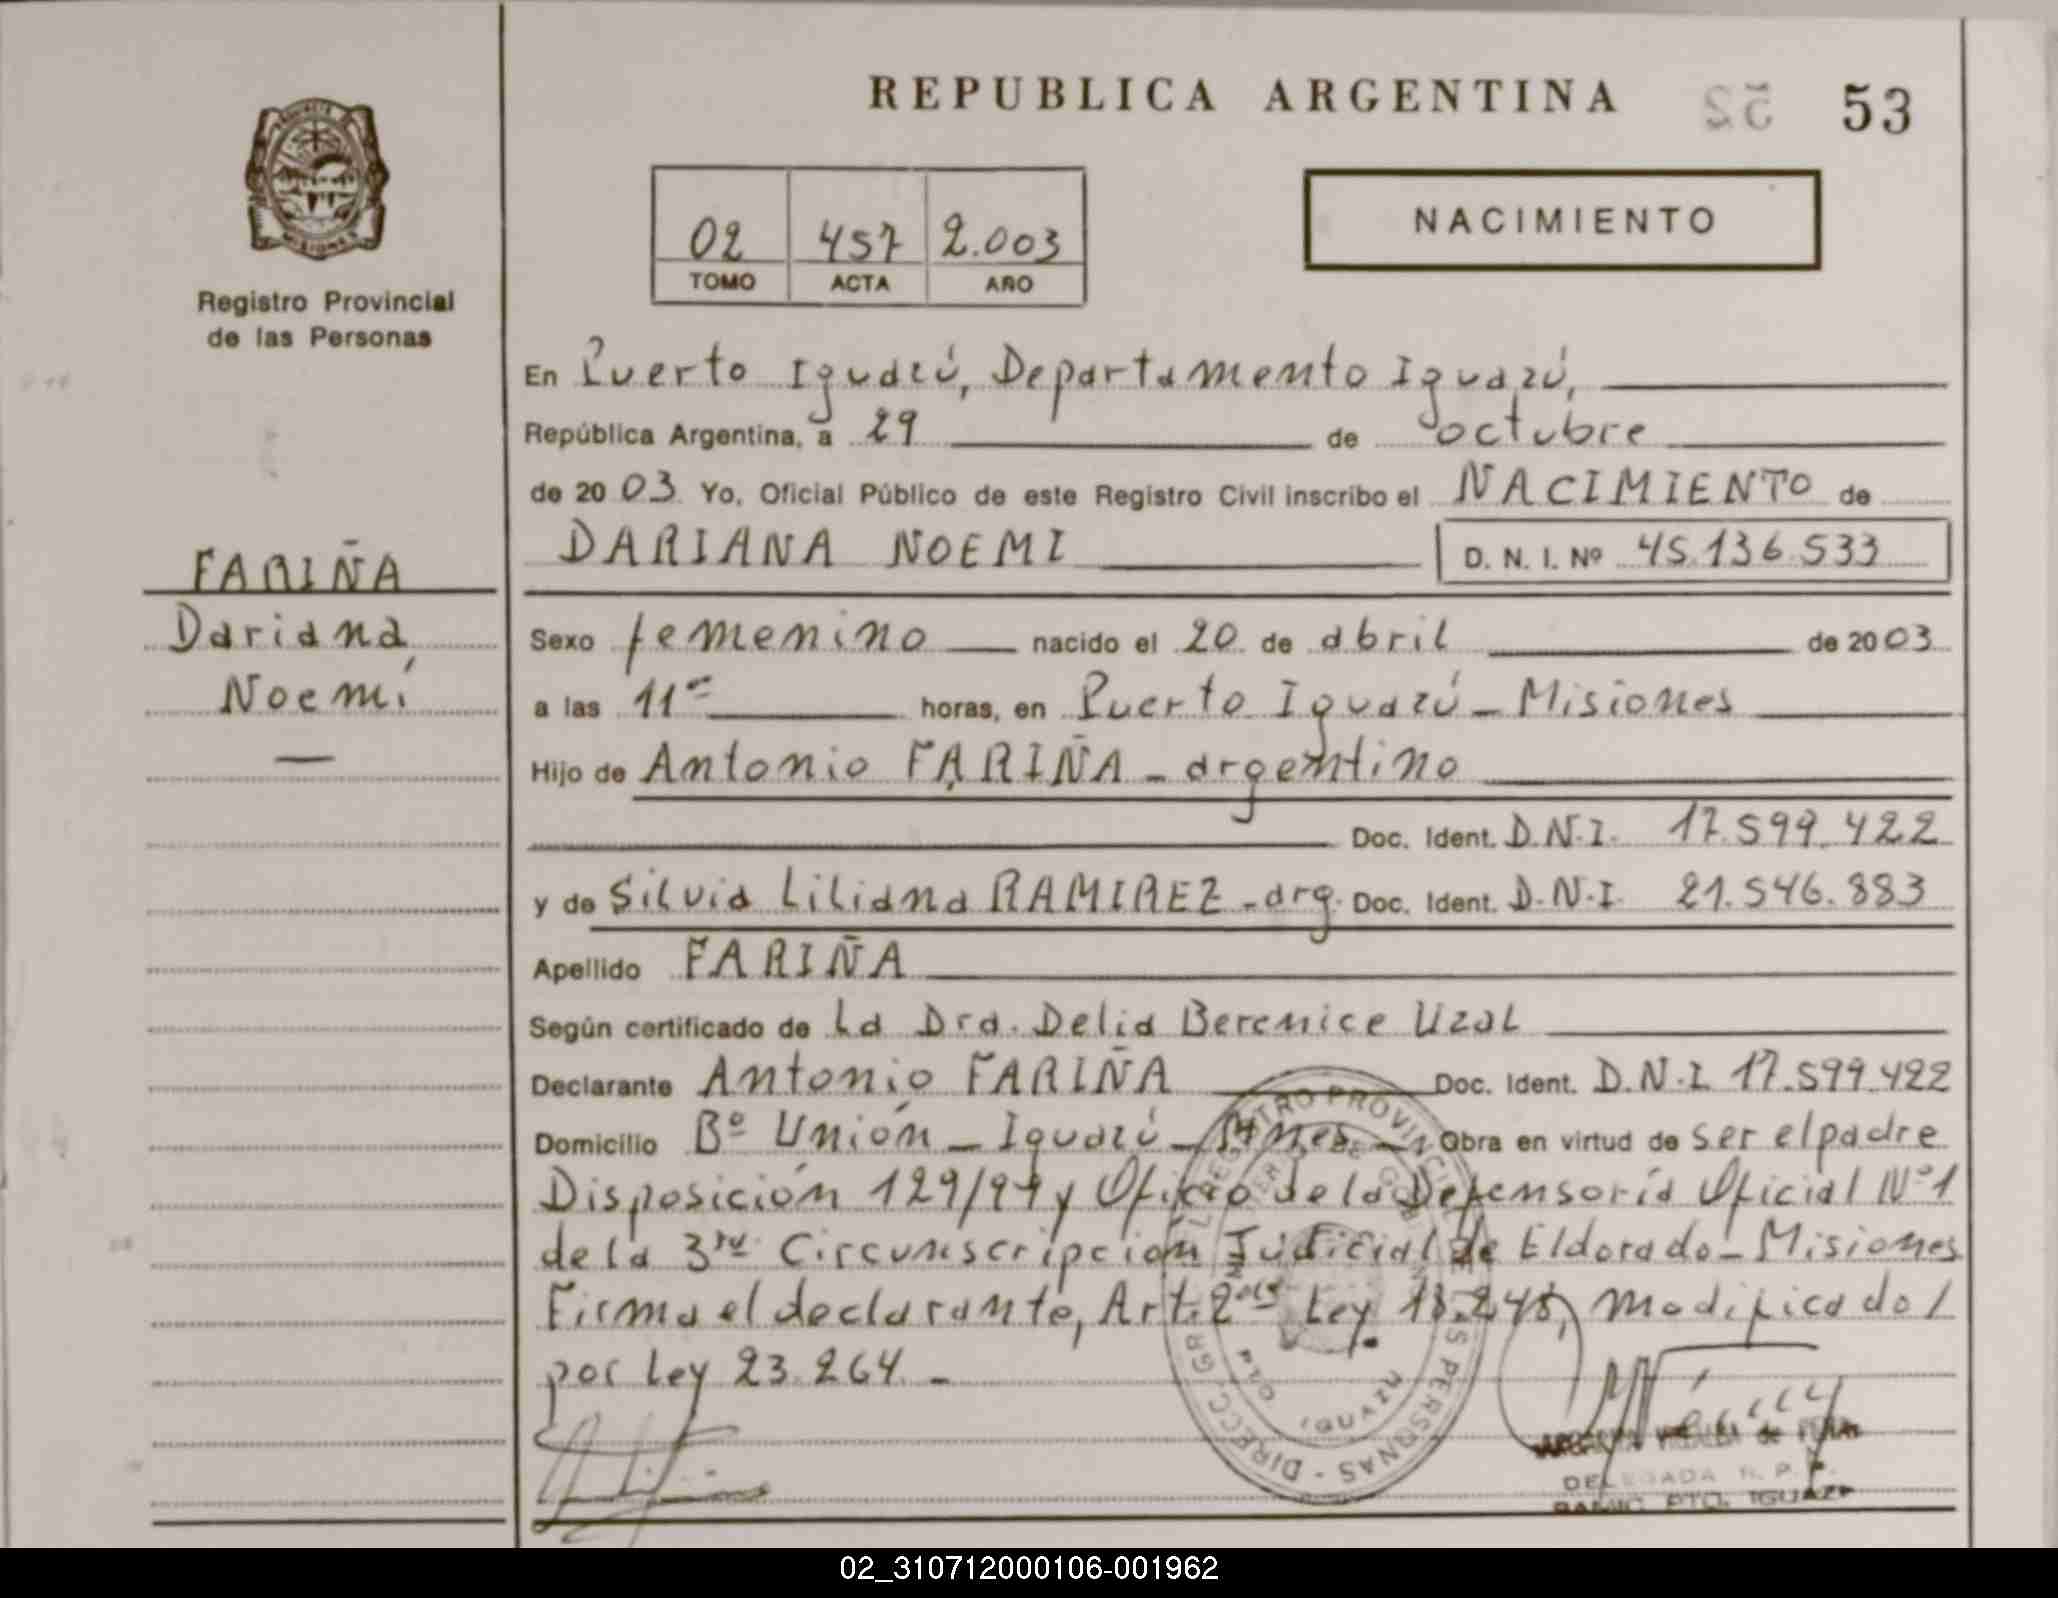 REPUBLICA ARGENTINA 52 53
02 457 2.003
TOMO ACTA AÑO
NACIMIENTO
Registro Provincial
de las Personas
FARIÑA
Dariana
Noemí
En Puerto Iguazú, Departamento Iguazú,
República Argentina, a 29 de octubre
de 20 03 Yo, Oficial Público de este Registro Civil inscribo el NACIMIENTO de
DARIANA NOEMI D. N. I. Nº 45.136.533
Sexo femenino nacido el 20 de abril de 20 03
a las 11 horas, en Puerto Iguazú - Misiones
Hijo de Antonio FARIÑA - argentino
Doc. Ident. D.N.I. 17.599.422
y de Silvia Liliana RAMIREZ - arg. Doc. Ident. D.N.I. 21.546.883
Apellido FARIÑA
Según certificado de La Dra. Delia Berenice Uzal
Declarante Antonio FARIÑA Doc. Ident. D.N.I. 17.599.422
Domicilio Bº Unión - Iguazú - Mnes - Obra en virtud de ser el padre
Disposición 129/94 y Oficio de la Defensoría Oficial Nº 1
de la 3ra Circunscripcion Judicial de Eldorado - Misiones
Firma el declarante, Art. 2 Ley 18.248, modificado/
por Ley 23.264. -
DELEGADA R. P. P.
PTO. IGUAZU
02_310712000106-001962